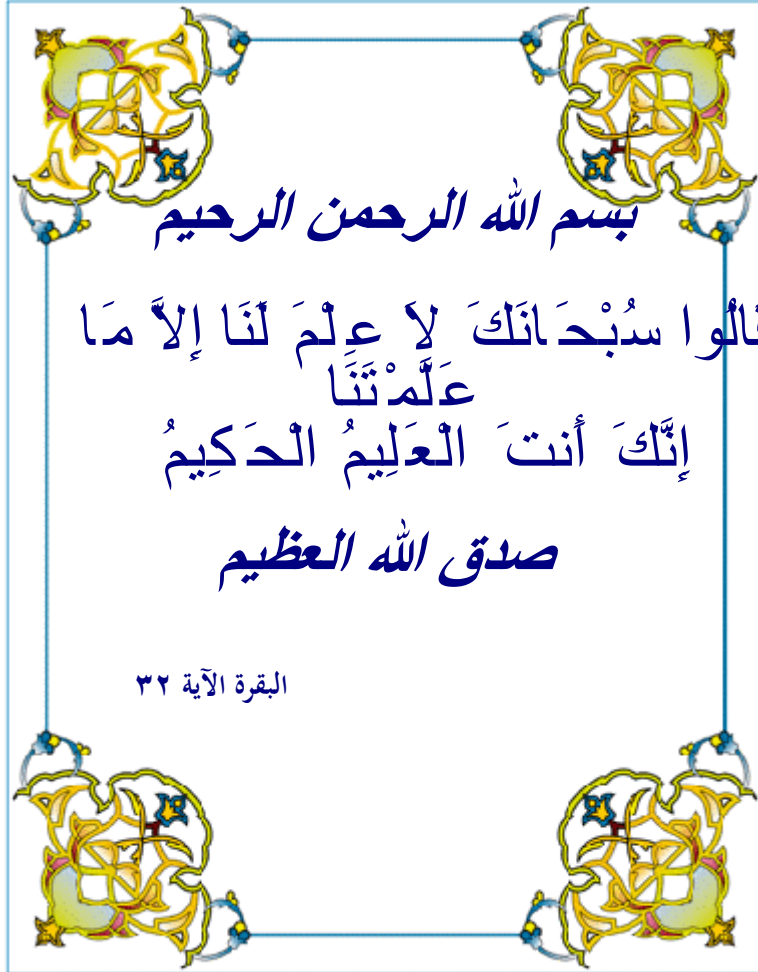 بسم الله الرحمن الرحيم
قَالُوا سُبْحَانَكَ لاَ عِلْمَ لَنَا إِلاَّ مَا
عَلَّمْتَنَا
إِنَّكَ أَنتَ الْعَلِيمُ الْحَكِيمُ
صدق الله العظيم
البقرة الآية ٣٢